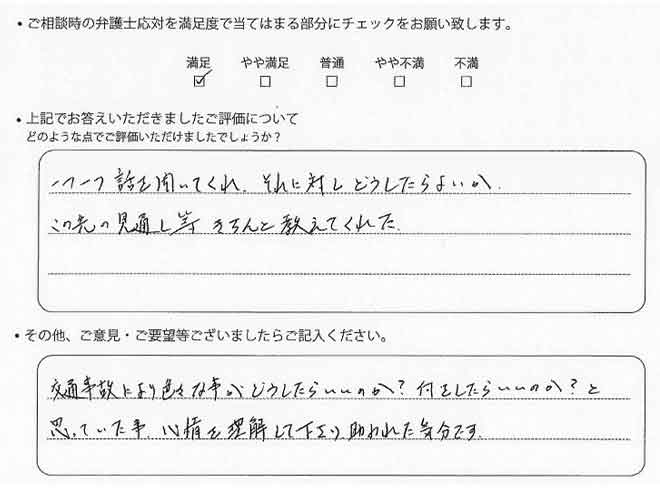 ・ご相談時の弁護士応対を満足度で当てはまる部分にチェックをお願い致します。
満足 やや満足 普通 やや不満 不満
☑ ☐ ☐ ☐ ☐
・上記でお答えいただきましたご評価について
どのような点でご評価いただけましたでしょうか？
一つ一つ話を聞いてくれ、それに対しどうしたらよいか、
この先の見通し等きちんと教えてくれた。
・その他、ご意見・ご要望等ございましたらご記入ください。
交通事故により色々な事がどうしたらいいのか？何をしたらいいのか？と
思っていた事、心情を理解して下さり助われた気分です。